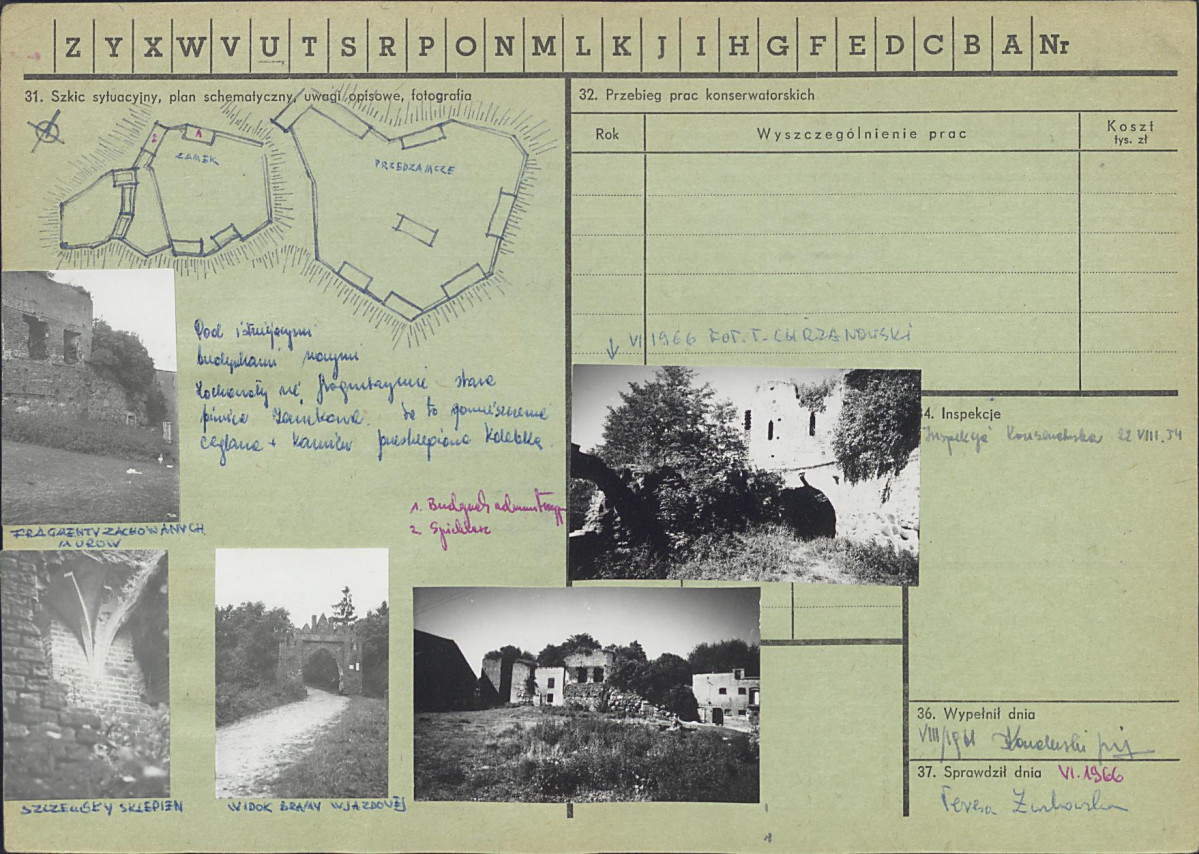 Z Y X W V U T S R P O N M L K J I H G F E D C B A Nr
31. Szkic sytuacyjny, plan schematyczny, uwagi opisowe, fotografia
ZAMEK
PRZEDZAMCZE
1
2
Pod istniejącymi
budynkami nowymi
Zachowały się fragmentarycznie stare
piwnice zamkowe. Są to pomieszczenia
ceglane + kamień przesklepione kolebką.
1. Budynek administracyj
2. Spichlerz
FRAGMENTY ZACHOWANYCH
MURÓW
SZCZEGÓŁY SKLEPIEŃ
WIDOK BRAMY WJAZDOWEJ
32. Przebieg prac konserwatorskich
Rok
Wyszczególnienie prac
Koszt
tys. zł
VI 1966 FOT. T. CHRZANOWSKI
4. Inspekcje
Inspekcja Konserwatorska 22 VIII.
36. Wypełnił dnia
VIII/1961
37. Sprawdził dnia VI.1966
Teresa Żurkowska